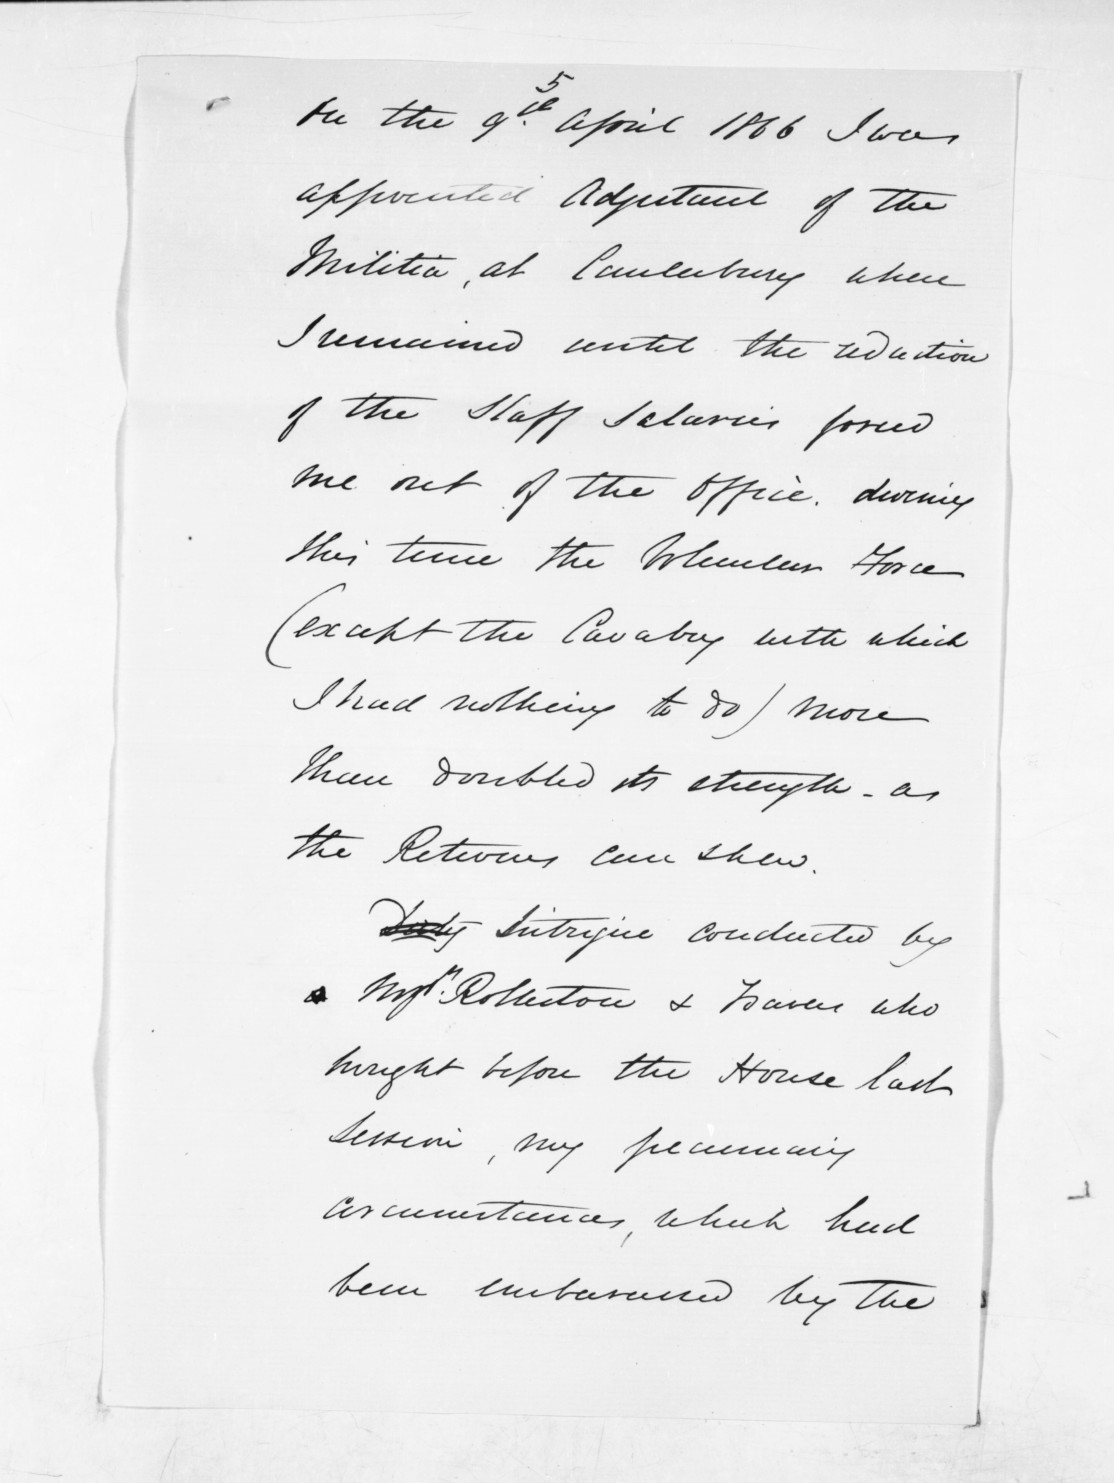 5
On the 9th. April 1866 I was
appointed Adjutant of the
Militia, at Canterbury where
I remained until the reduction
of the Staff Salaries forced
me out of the Office. during
this time the Volunteer Force
(except the Cavalry with which
I had nothing to do) more
than doubled its strength - as
the Returns can shew.
Dirty Intrigue conducted by
Rolleston & Travers who
brought before the House last
Session, my pecuniary
circumstances, which had
been embarassed by the